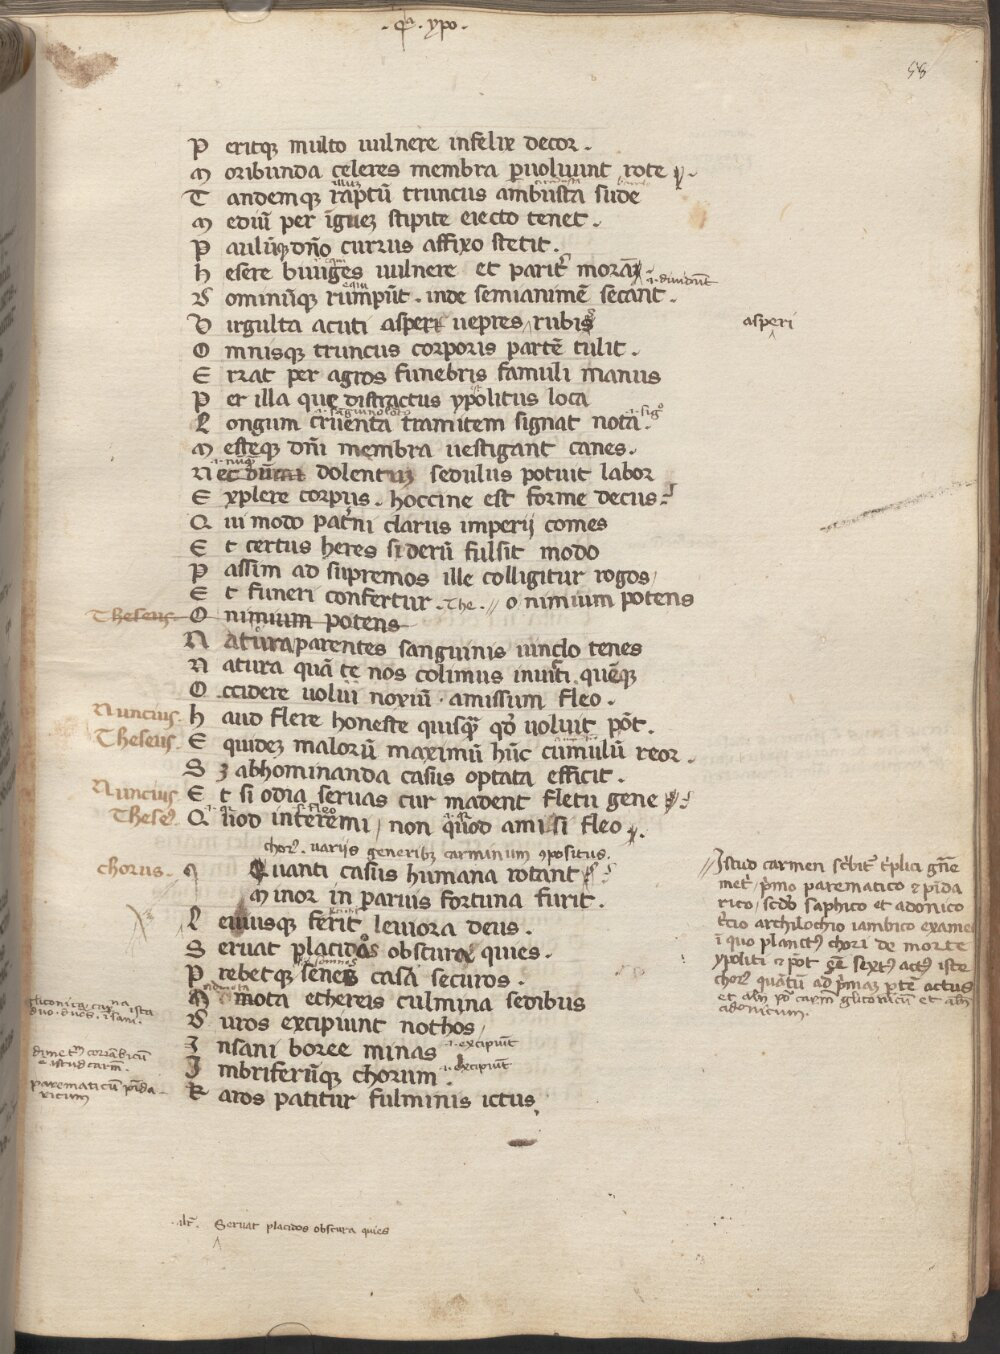 .qª. ypo.
58
P eritqȝ multo uulnere infelix decor.
M oribunda celeres membra ꝑuoluunt rote.
T andemqȝ raptū truncus ambusta sude
M ediū per īguez stipite eiecto tenet.
P aulūqȝ dn̄o currus affixo stetit.
h esere biiuges uulnere et parit᷑ moraȝ
.i. diuidūt
D ominūqȝ rumpūt. inde semianimē secant.
V irgulta acuti asperi uepres rubis
asperi
O mnisqȝ truncus corporis partē tulit.
E rrat per agros funebris famuli manus
P er illa que distractus ypolitus loca
.i. sāguinolēto
L ongum cruenta tramitem signat nota.
M esteqȝ dn̄i membra uestigant canes.
N ec dolentuȝ sedulus potuit labor
E xplere corpus. hoccine est forme decus.
Q ui modo pat̄ni clarus imperij comes
E t certus heres siderū fulsit modo
P assim ad supremos ille colligitur rogos
E t funeri confertur. The. // o nimium potens
Theseus. O nimium potens
N atura parentes sanguinis uinclo tenes
N atura quā te nos colimus inuiti quēqȝ
O ccidere uolui noxiū. amissum fleo.
Nuncius. h aud flere honeste quisq̄ qd̄ uoluit pōt.
Theseus. E quidez malorū maximū hūc cumulū reor.
S ȝ abhominanda casus optata efficit.
Nuncius E t si odia seruas cur madent fletu gene
.i. fleo
Theseꝰ. Q uod interemi, non quod amisi fleo.
chorꝰ. uarijs generibȝ carminum ꝯpositus.
chorus. Quanti casus humana rotant
M inor in paruis fortuna furit.
L euiusqȝ ferit leuiora deus.
S eruat placidos obscura quies.
P rebetqȝ senes casa securos.
A dmota ethereis culmina sedibus
D uros excipiunt nothos
I nsani boree minas .i. excipiūt
I mbriferūqȝ chorum. .i. excipiūt
R aros patitur fulminis ictus.
// Istud carmen sc̄bit᷑ t̄plici gn̄e
met̄. p̄mo parematico ⁊ pīda
rico, scd̄o saphico et adonico
t̄cio archilochio iambico exame
ī quo planctꝰ chori de morte
ypoliti
et alīn carm̄ gliconicū et alīn
adonicum.
dimet̄ corrābicū
e istud carm̄.
parematicū pīda
ricum
.alt̄. Seruat placidos obscura quies